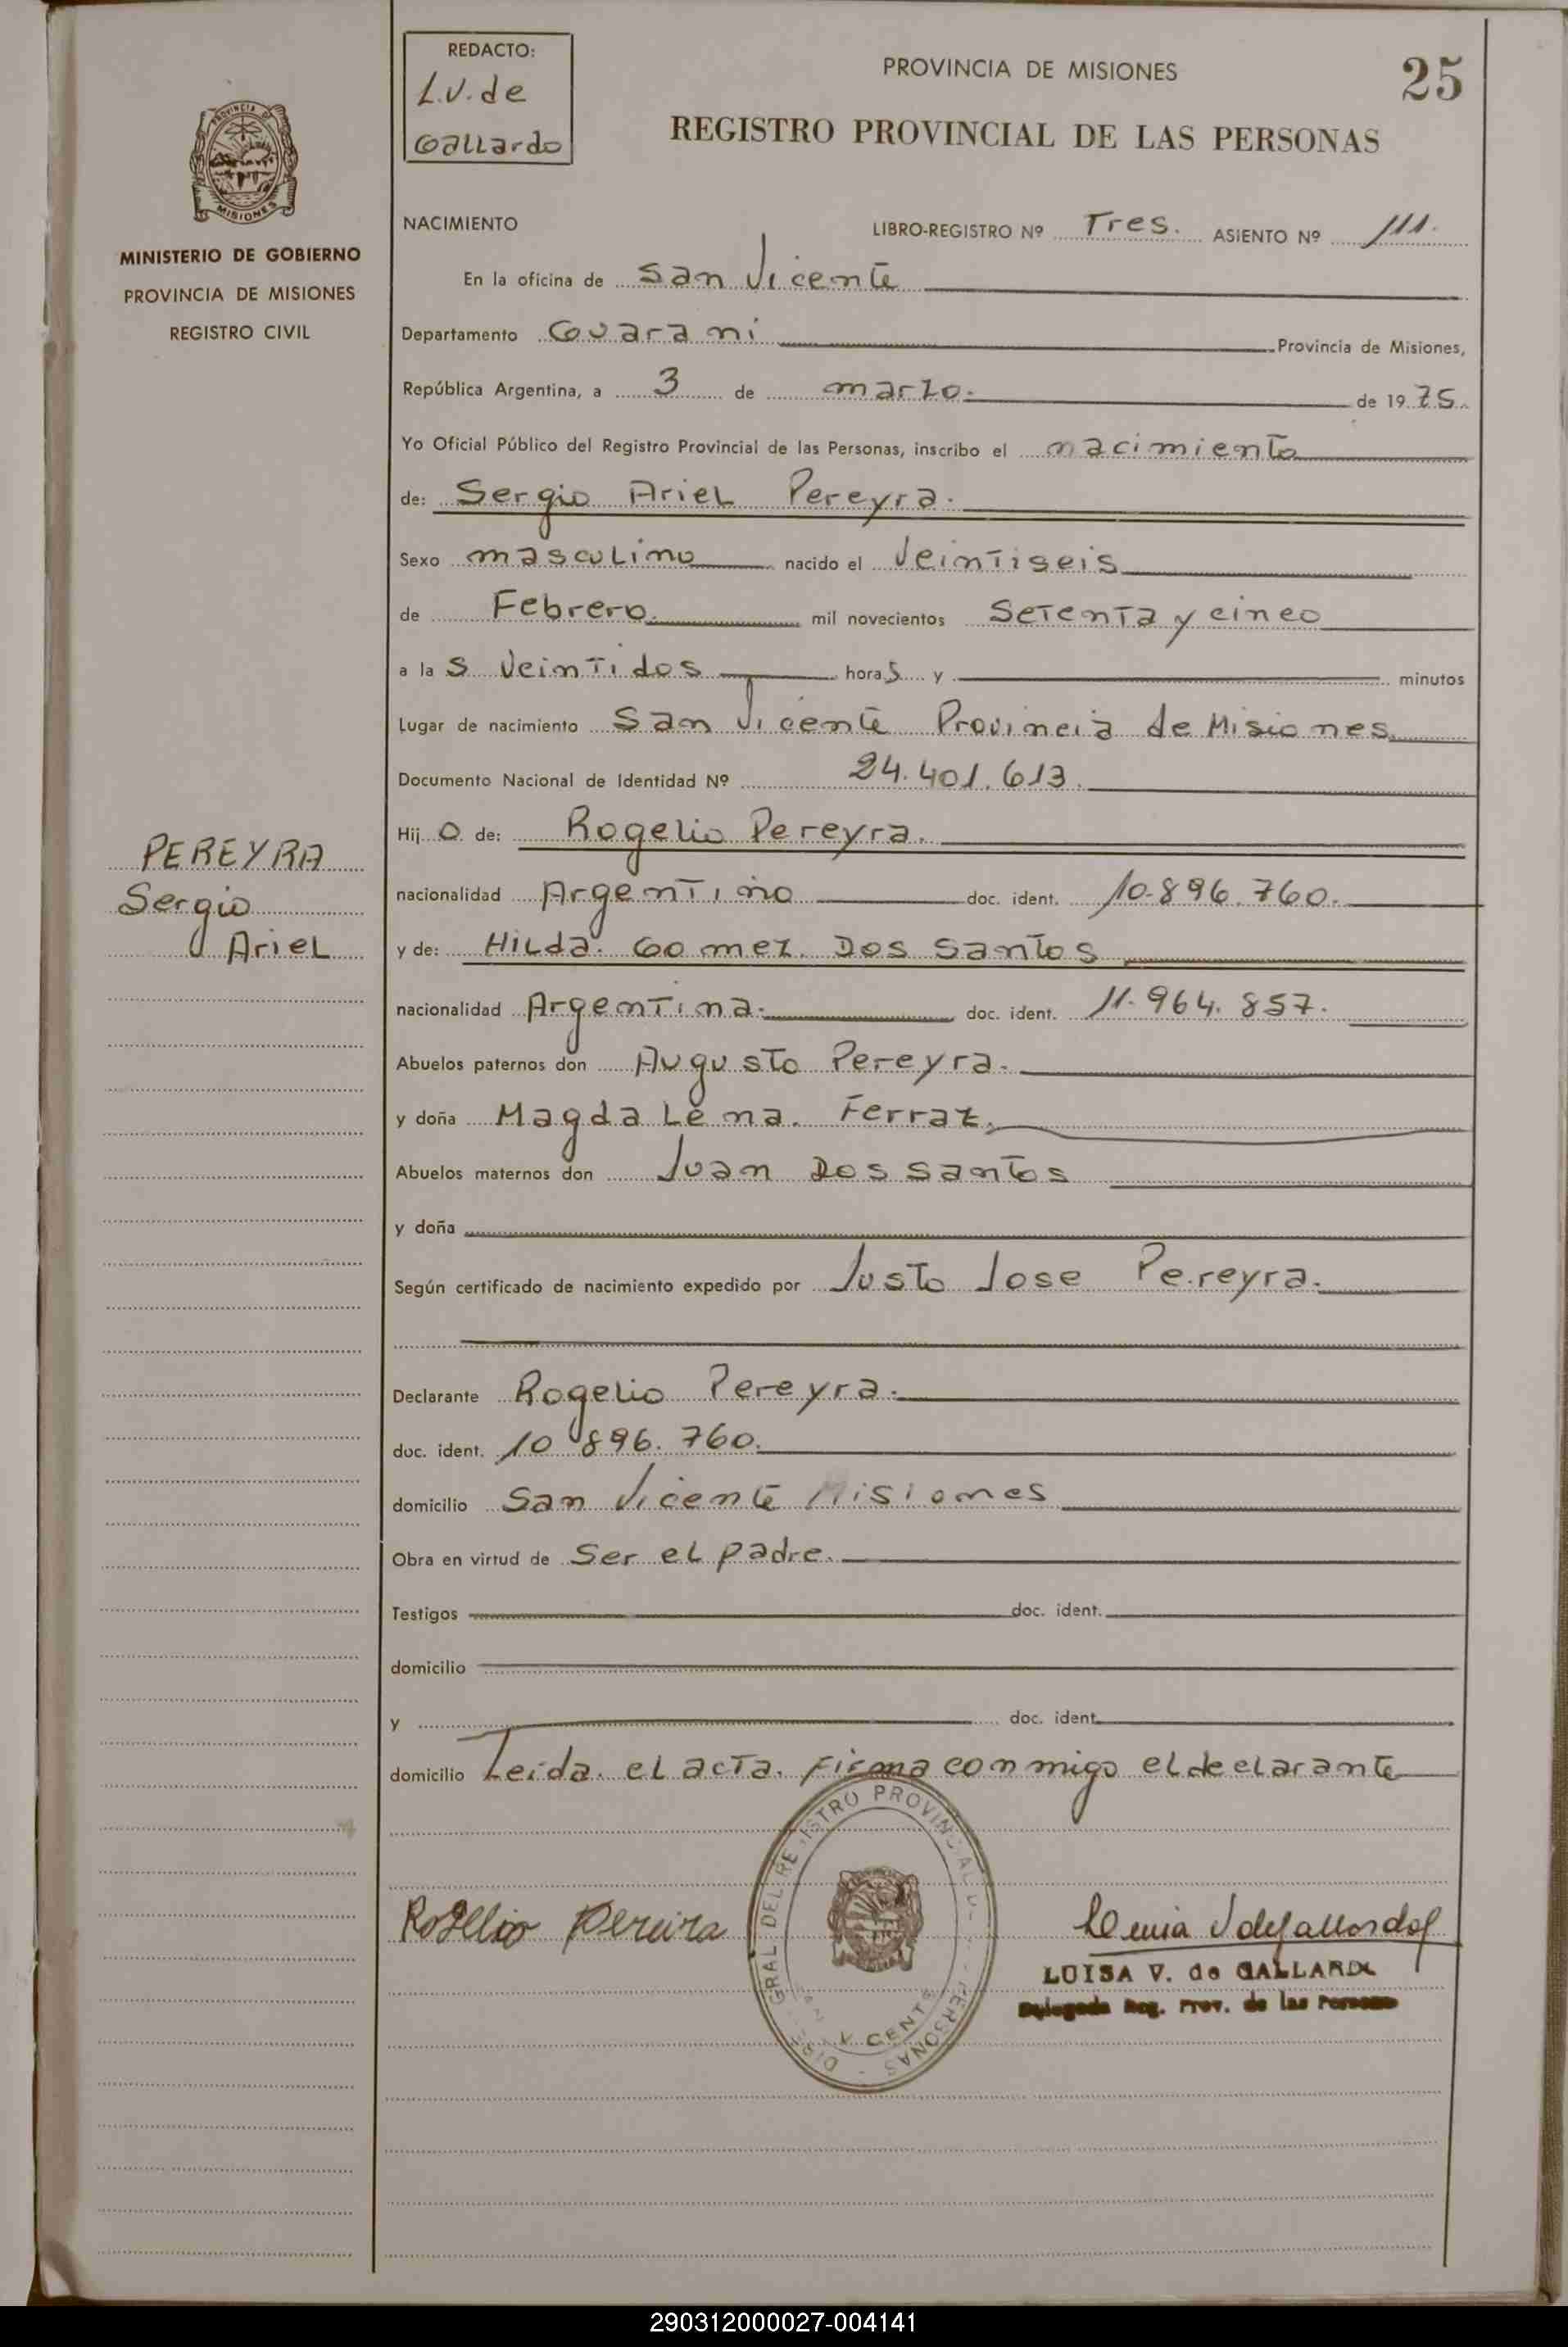 REDACTO:
L.V. de
Gallardo
PROVINCIA DE MISIONES
25
REGISTRO PROVINCIAL DE LAS PERSONAS
PROVINCIA DE
MISIONES
MINISTERIO DE GOBIERNO
PROVINCIA DE MISIONES
REGISTRO CIVIL
NACIMIENTO
LIBRO-REGISTRO Nº Tres. ASIENTO Nº 111.
En la oficina de San Vicente
Departamento Guarani Provincia de Misiones,
República Argentina, a 3 de marzo. de 1975.
Yo Oficial Público del Registro Provincial de las Personas, inscribo el nacimiento
de: Sergio Ariel Pereyra.
Sexo masculino nacido el Veintiseis
de Febrero. mil novecientos Setenta y cinco
a la s Veintidos hora s y minutos
Lugar de nacimiento San Vicente Provincia de Misiones.
Documento Nacional de Identidad Nº 24.401.613.
Hij o de: Rogelio Pereyra.
nacionalidad Argentino doc. ident. 10.896.760.
y de: Hilda. Gomez. Dos Santos
nacionalidad Argentina. doc. ident. 11.964.857.
Abuelos paternos don Augusto Pereyra.
y doña Magdalena. Ferraz.
Abuelos maternos don Juan Dos Santos
y doña
Según certificado de nacimiento expedido por Justo Jose Pereyra.
Declarante Rogelio Pereyra.
doc. ident. 10 896.760.
domicilio San Vicente Misiones
Obra en virtud de Ser el padre.
Testigos doc. ident.
domicilio
y doc. ident.
domicilio Leida. el acta. Firma conmigo el declarante
PEREYRA
Sergio
Ariel
Rogelio Pereira
GRAL DEL REGISTRO PROVINCIAL
PERSONAS
LUISA V. de GALLARDO
Delegada Reg. Prov. de las Personas
290312000027-004141